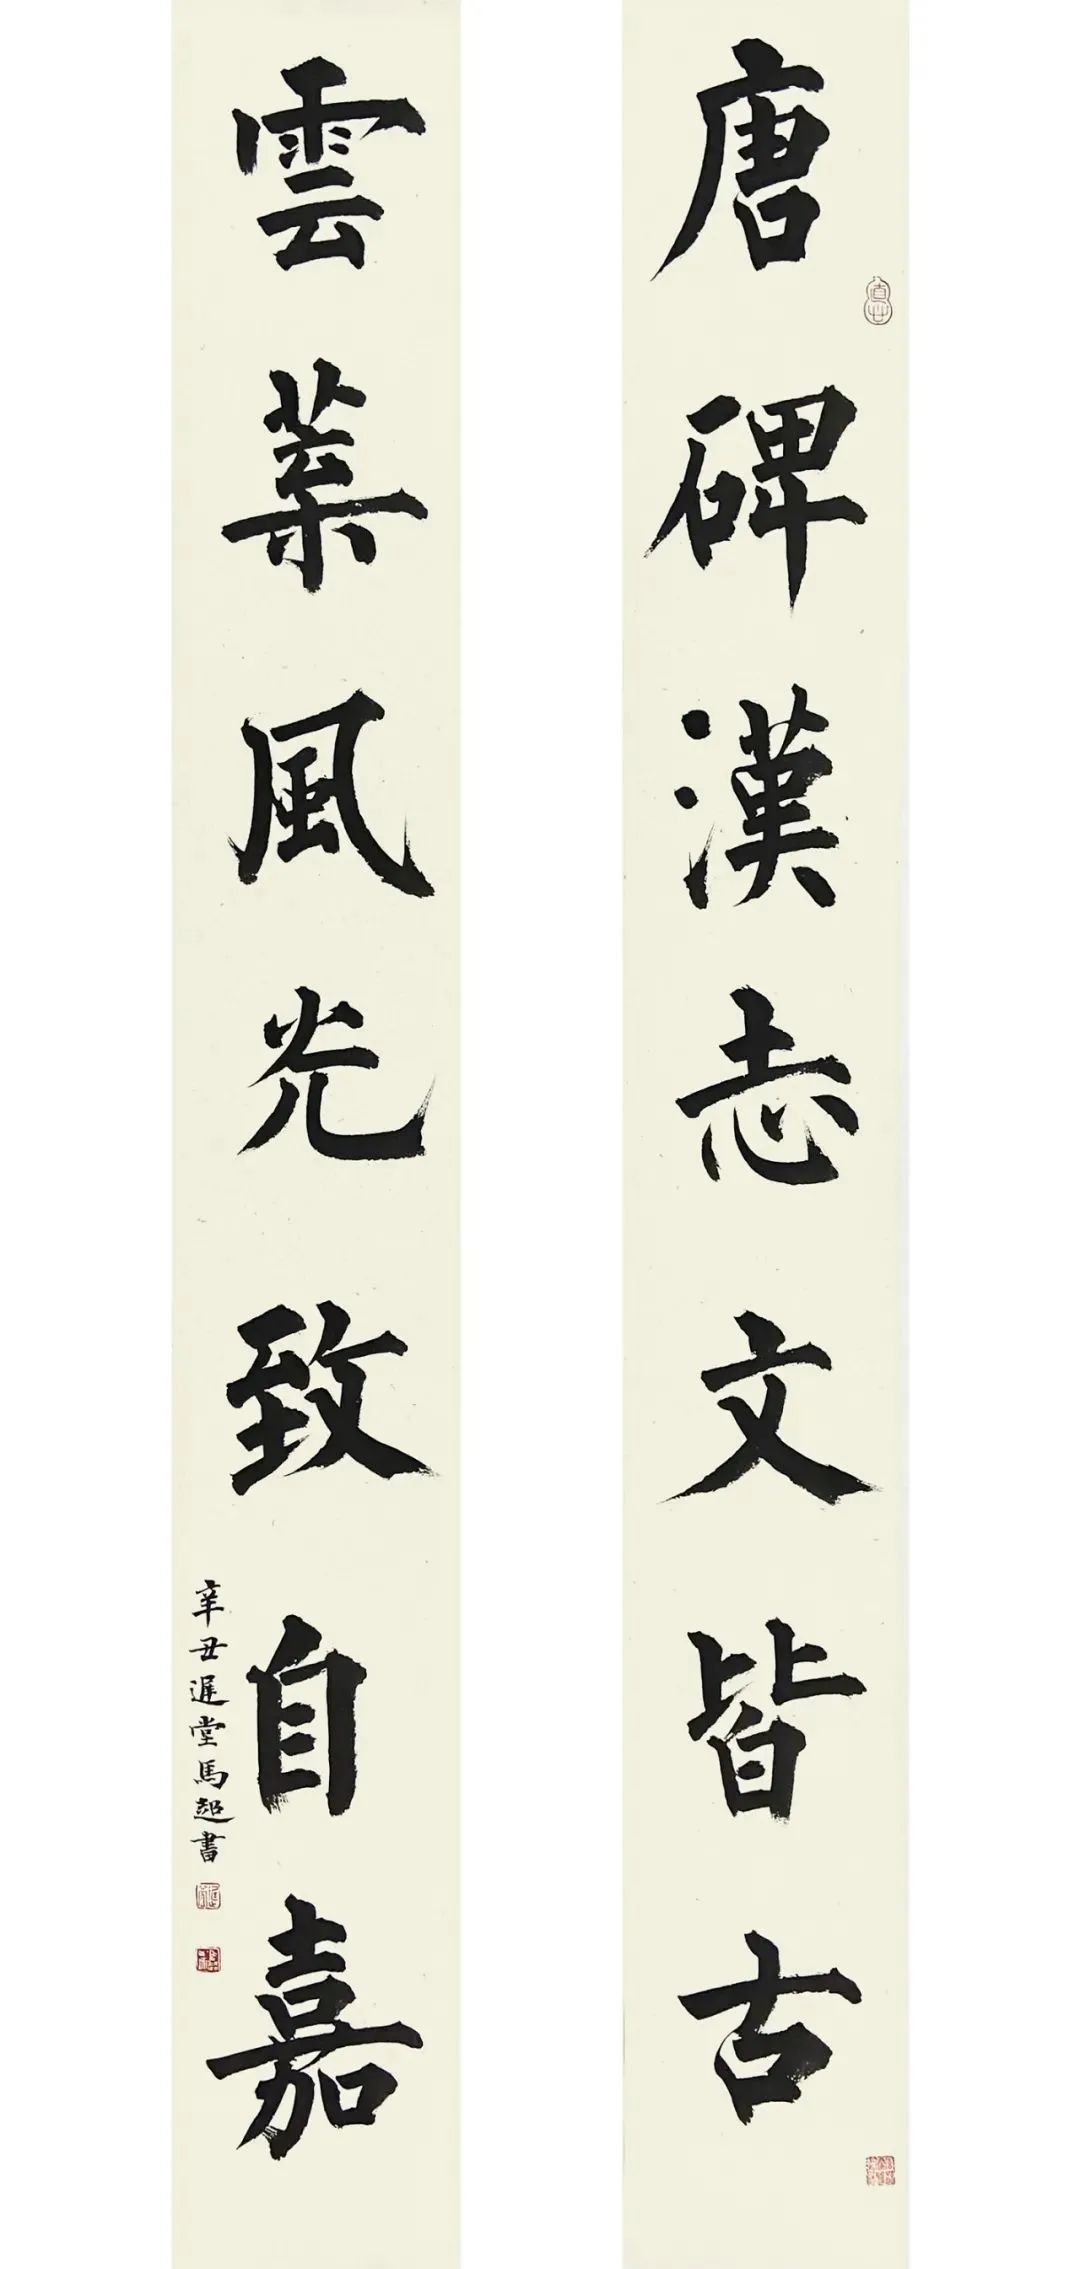 唐碑漢志文皆古
雲葉風光致自嘉
辛丑遲堂馬超書